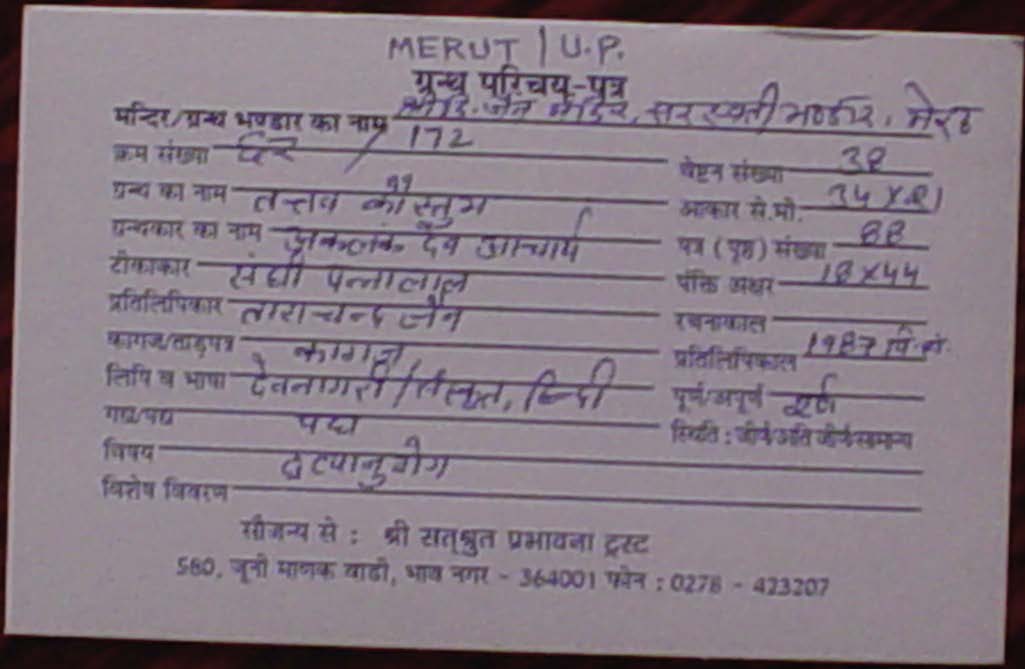 MERUT / U.P.
ग्रन्थ परिचय-पत्र
मन्दिर/ग्रन्थ भण्डार का नाम श्री दि. जैन मंदिर, सरस्वती भण्डार, मेरठ
क्रम संख्या / 172 वेष्टन संख्या 38
ग्रन्थ का नाम तत्त्व कौस्तुभ आकार से.मी. 34 X 21
ग्रन्थकार का नाम अकलंक देव आचार्य पत्र (पृष्ठ) संख्या 88
टीकाकार संघी पन्नालाल पंक्ति अक्षर 18 X 44
प्रतिलिपिकार ताराचन्द जैन रचनाकाल
कागज/ताड़पत्र कागज प्रतिलिपिकाल 1987 वि.सं.
लिपि व भाषा देवनागरी / संस्कृत, हिन्दी पूर्ण/अपूर्ण पूर्ण
गद्य/पद्य पद्य स्थिति : जीर्ण/अति जीर्ण/सामान्य
विषय द्रव्यानुयोग
विशेष विवरण
सौजन्य से : श्री सत्श्रुत प्रभावना ट्रस्ट
580, जूनी माणक वाडी, भाव नगर - 364001 फोन : 0278 - 423207